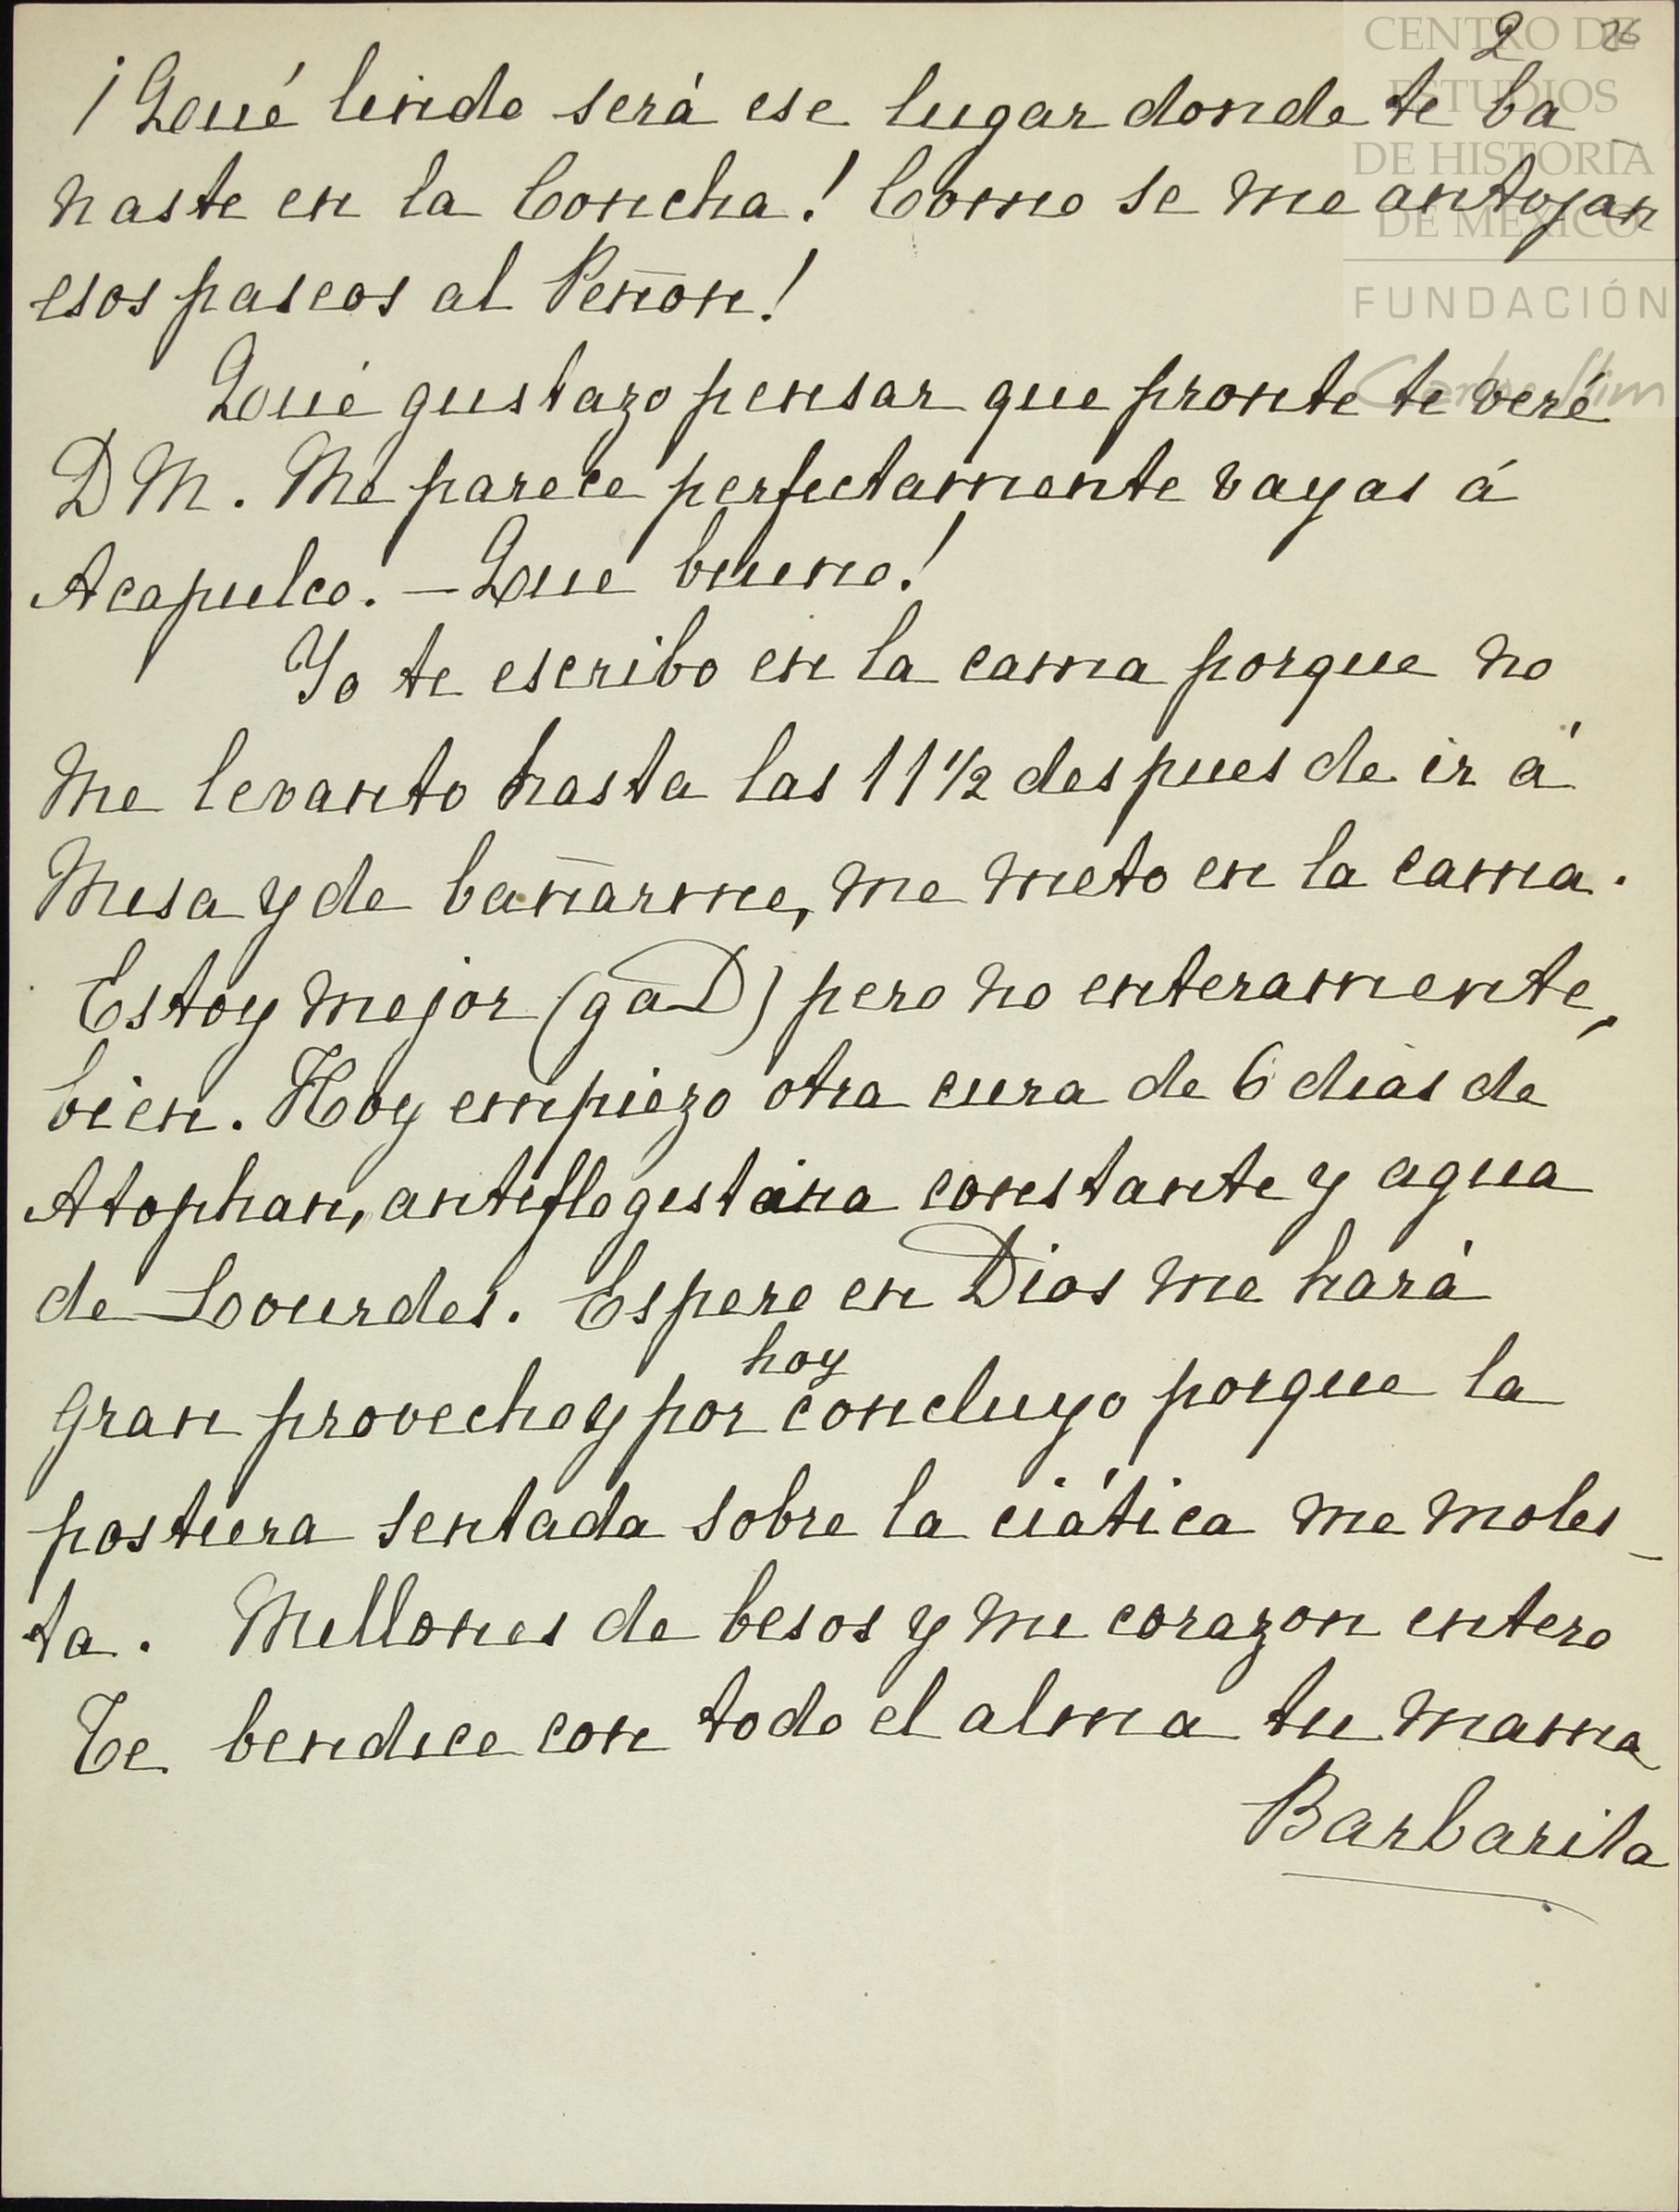 2 26
CENTRO DE
ESTUDIOS
DE HISTORIA
DE MÉXICO
FUNDACIÓN
Carlos Slim
¡Qué lindo será ese lugar donde te ba
ñaste en la Concha! Como se me antojan
esos paseos al Peñon!
Qué gustazo pensar que pronto te veré
D M. Me parece perfectamente vayas á
Acapulco. — Que bueno!
Yo te escribo en la cama porque no
me levanto hasta las 11 1/2 despues de ir á
Misa y de bañarme, me meto en la cama.
Estoy mejor (gaD) pero no enteramente,
bien. Hoy empiezo otra cura de 6 dias de
Atophan, antiflogestina constante y agua
de Lourdes. Espero en Dios me hará
hoy
gran provecho y por concluyo porque la
postura sentada sobre la ciática me moles_
ta. Millones de besos y mi corazon entero
Te bendice con todo el alma tu mama
Barbarita